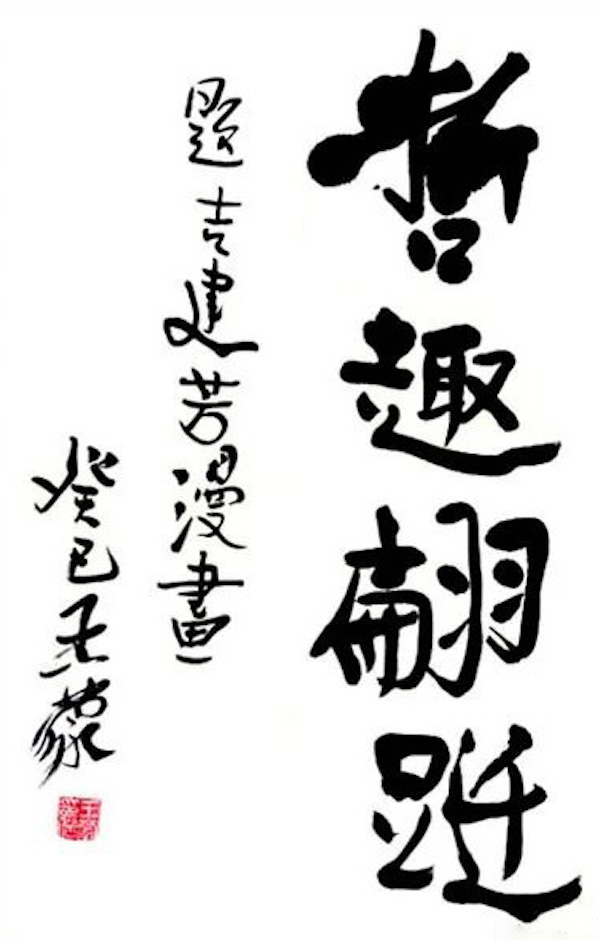 哲趣翩跹
题吉建芳漫畫
癸巳王蒙